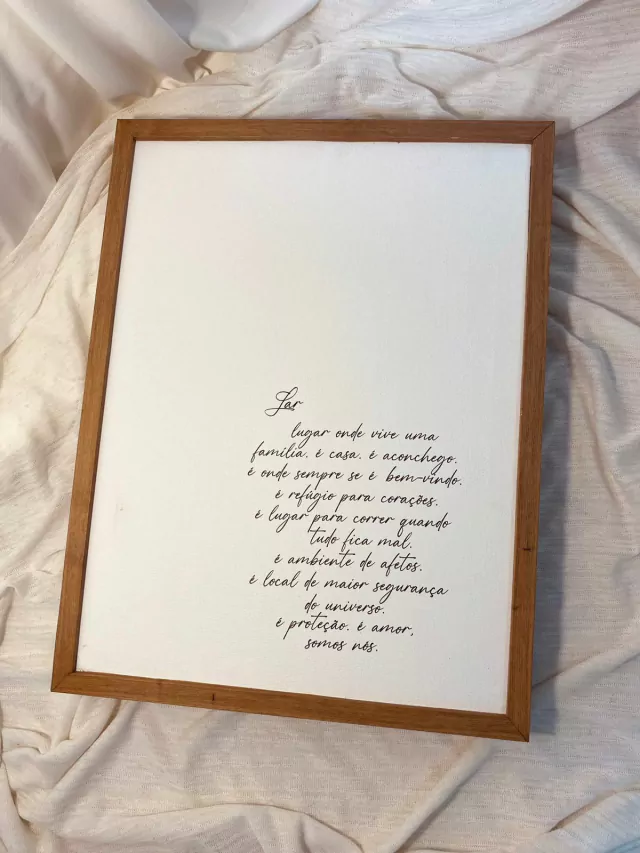 Lar
lugar onde vive uma
família. é casa. é aconchego.
é onde sempre se é bem-vindo.
é refúgio para corações.
é lugar para correr quando
tudo fica mal.
é ambiente de afetos.
é local de maior segurança
do universo.
é proteção. é amor,
somos nós.